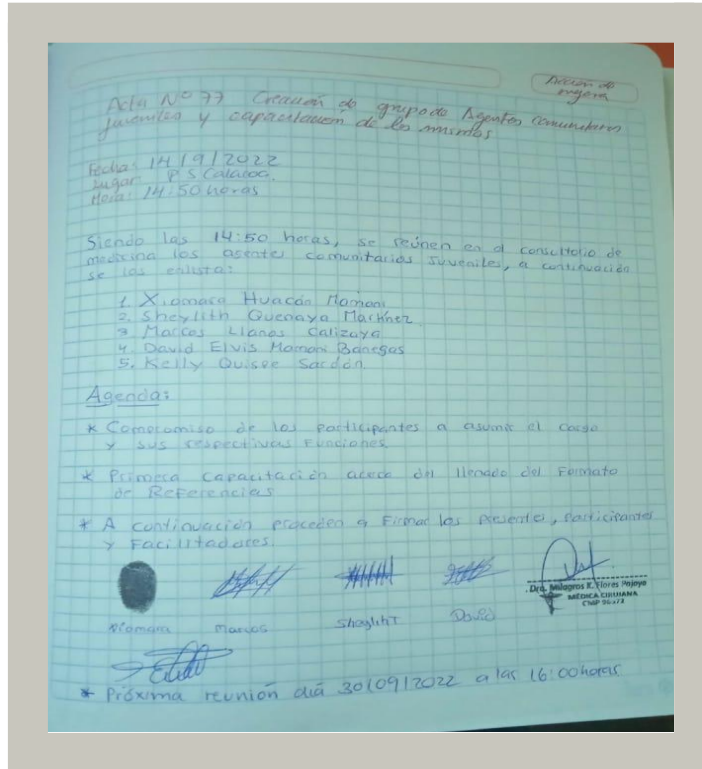 Acción de mejora
Acta Nº 77 Creación de grupo de Agentes Comunitarios
juveniles y capacitación de los mismos
Fecha: 14/9/2022
Lugar: P S Calacoa.
Hora: 14:50 horas
Siendo las 14:50 horas, se reúnen en el consultorio de
medicina los agentes comunitarios Juveniles, a continuación
se los enlista:
1. Xiomara Huacán Mamani
2. Sheylith Quenaya Martínez
3 Marcos Llanos Calizaya
4. David Elvis Mamani Banegas
5. Kelly Quispe Sardón
Agenda:
* Compromiso de los participantes a asumir el cargo
y sus respectivas Funciones.
* Primera Capacitación acerca del llenado del Formato
de Referencias
* A continuación proceden a Firmar los presentes, Participantes
y Facilitadores.
Dra. Milagros K. Flores
MÉDICA CIRUJANA
CMP
Xiomara Marcos Sheylith David
* Próxima reunión día 30/09/2022 a las 16:00 horas